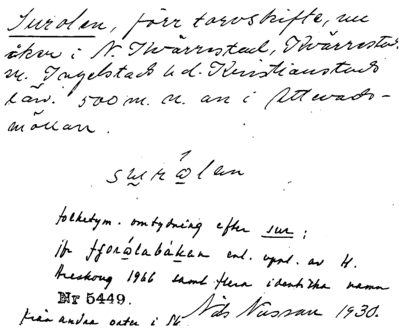 Surolen, förr torvskifte, nu
åker i N. Tvärrestad, Tvärrestads
sn. Ingelstads hd. Kristianstads
län. 500 m. n. om i Attevads-
möllan.
surǻlen
folketym. omtydning efter sur;
jfr fjorålabåkan enl. uppl. av H.
Areskoug 1966 samt flera identiska namn
Nr 5449.
från andra orter i Sk.
Nils Nassau 1930.